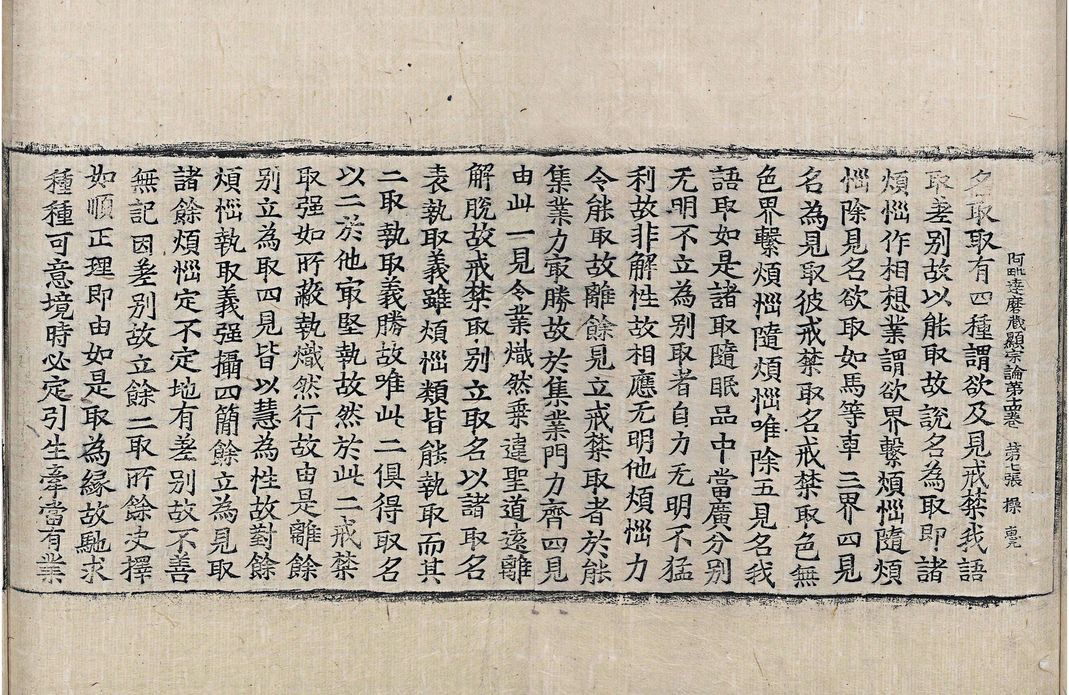 阿毗達磨蔵顯宗論第 卷 第七張 操
名取取有四種謂欲及見戒禁我語
取差别故以能取故說名為取即諸
煩惱作相想業謂欲界繫煩惱隨煩
惱除見名欲取如馬等車三界四見
名為見取彼戒禁取名戒禁取色無
色界繫煩惱隨煩惱唯除五見名我
語取如是諸取隨眠品中當廣分别
无明不立為别取者自力无明不猛
利故非解性故相應无明他煩惱力
令能取故離餘見立戒禁取者於能
集業力㝡勝故於集業門力齊四見
由此一見令業熾然乗違聖道遠離
解脱故戒禁取别立取名以諸取名
表執取義雖煩惱類皆能執取而其
二取執取義勝故唯此二俱得取名
以二於他㝡堅執故然於此二戒禁
取强如所蔽執熾然行故由是離餘
别立為取四見皆以慧為性故對餘
煩惱執取義强攝四簡餘立為見取
諸餘煩惱定不定地有差别故不善
無記因差别故立餘二取所餘决擇
如順正理即由如是取為緣故馳求
種種可意境時必定引生牽當有業